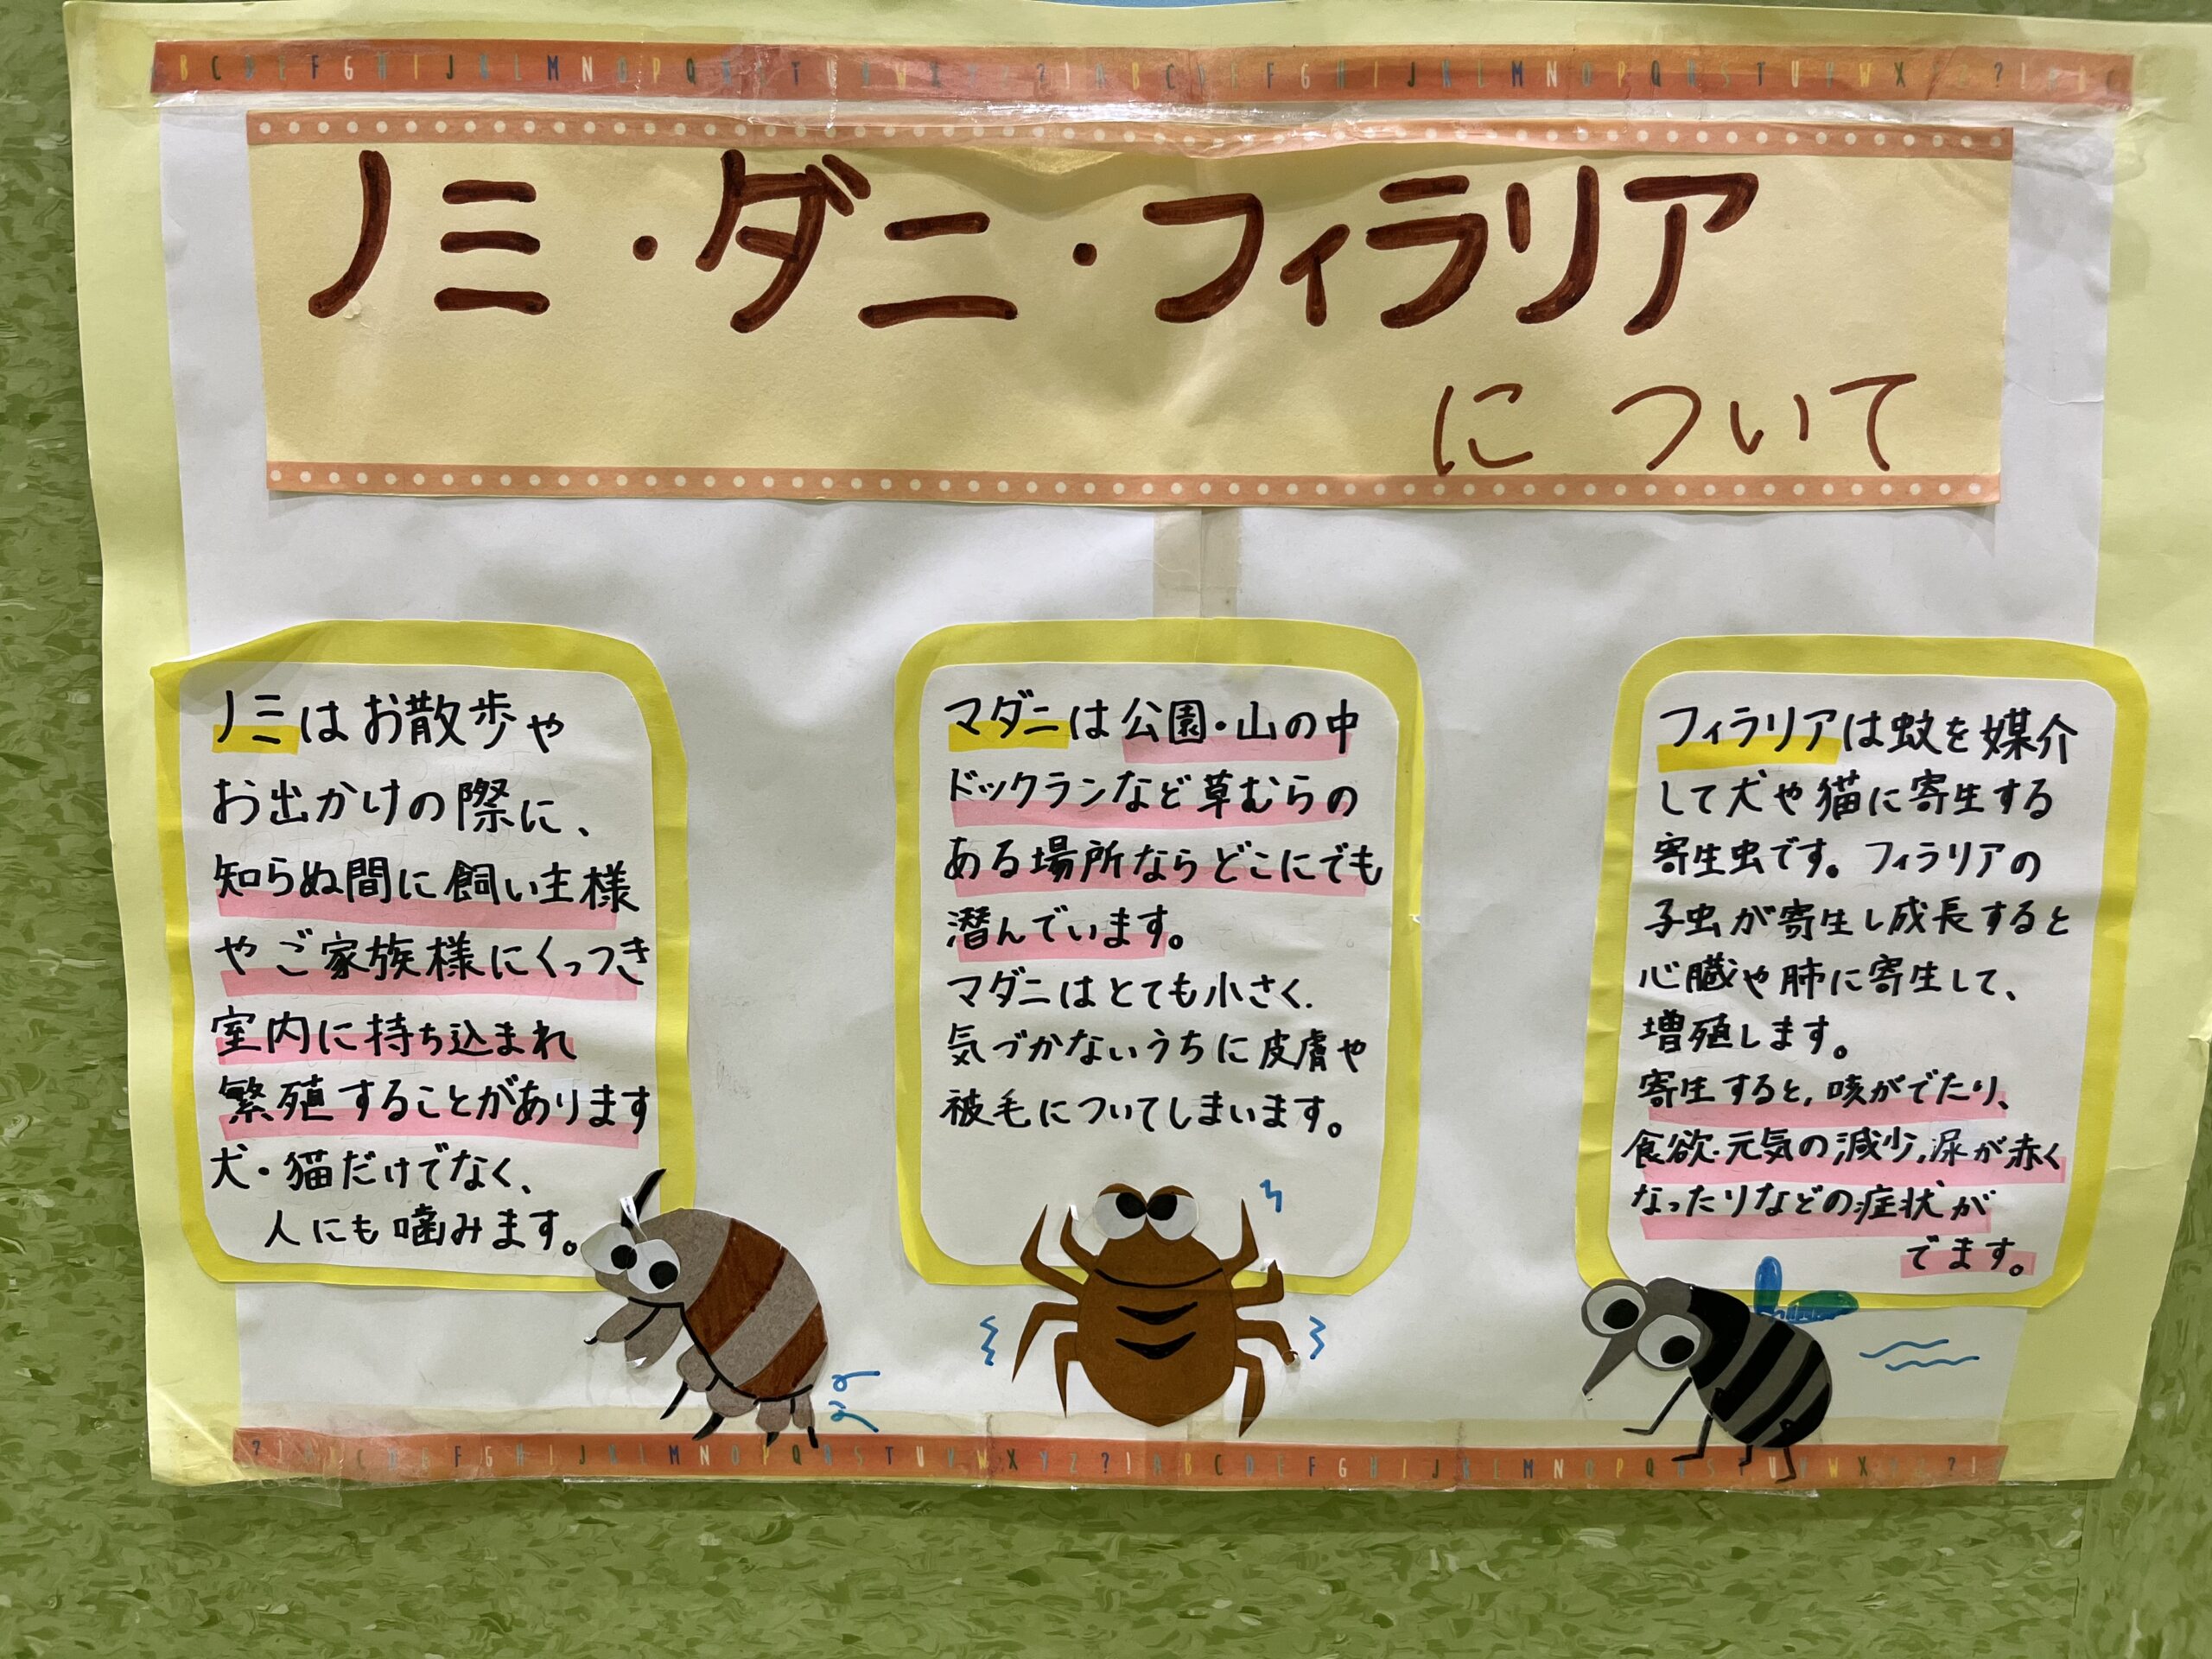 BCDEFGHIJKLMNOPQRSTUVWXYZ?!ABCDEFGHIJKLMNOPQRSTUVWXYZ?!
ノミ・ダニ・フィラリア
について
ノミはお散歩や
お出かけの際に、
知らぬ間に飼い主様
やご家族様にくっつき
室内に持ち込まれ
繁殖することがあります
犬・猫だけでなく、
人にも噛みます。
マダニは公園・山の中
ドックランなど草むらの
ある場所ならどこにでも
潜んでいます。
マダニはとても小さく、
気づかないうちに皮膚や
被毛についてしまいます。
フィラリアは蚊を媒介
して犬や猫に寄生する
寄生虫です。フィラリアの
子虫が寄生し成長すると
心臓や肺に寄生して、
増殖します。
寄生すると、咳がでたり、
食欲・元気の減少、尿が赤く
なったりなどの症状が
でます。
?!ABCDEFGHIJKLMNOPQRSTUVWXYZ?!ABCDEFGHIJKLMNOPQRSTUVWXYZ?!